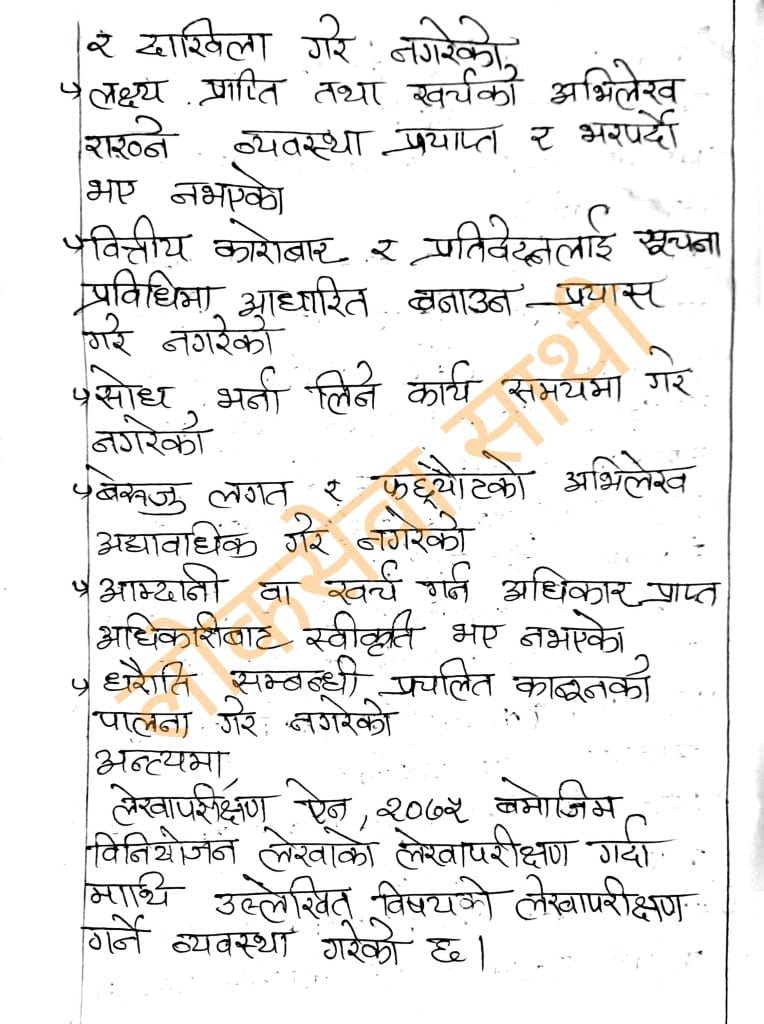 र दाखिला गरे नगरेको,
↳ लक्ष्य प्राप्ति तथा खर्चको अभिलेख
राख्ने व्यवस्था प्रयाप्त र भरपर्दो
भए नभएको
↳ वित्तीय कारोबार र प्रतिवेदनलाई सूचना
प्रविधिमा आधारित बनाउन प्रयास
गरे नगरेको
↳ सोध भर्ना लिने कार्य समयमा गरे
नगरेको
↳ बेरुजु लगत र फर्छ्यौटको अभिलेख
अद्यावधिक गरे नगरेको
↳ आम्दानी वा खर्च गर्न अधिकार प्राप्त
अधिकारीबाट स्वीकृति भए नभएको
↳ धरौति सम्बन्धी प्रचलित कानूनको
पालना गरे नगरेको
अन्त्यमा
लेखापरीक्षण ऐन, २०७५ बमोजिम
विनियोजन लेखाको लेखापरीक्षण गर्दा
माथि उल्लेखित विषयको लेखापरीक्षण
गर्ने व्यवस्था गरेको छ।
लोकसेवा साथी